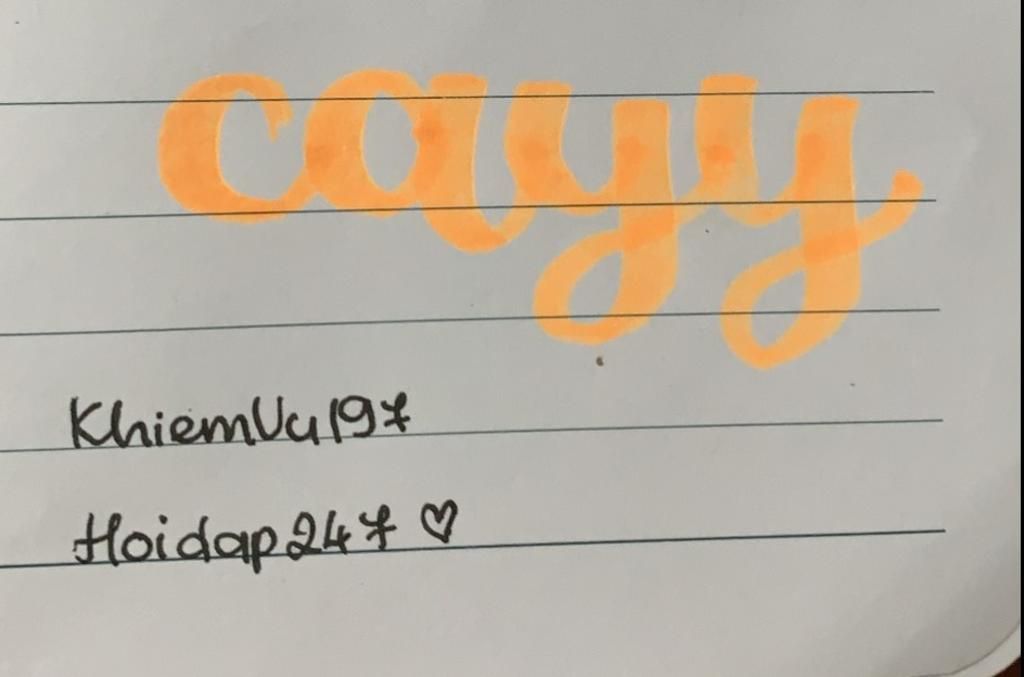 cayy
KhiemVu197
Hoidap247 ♡